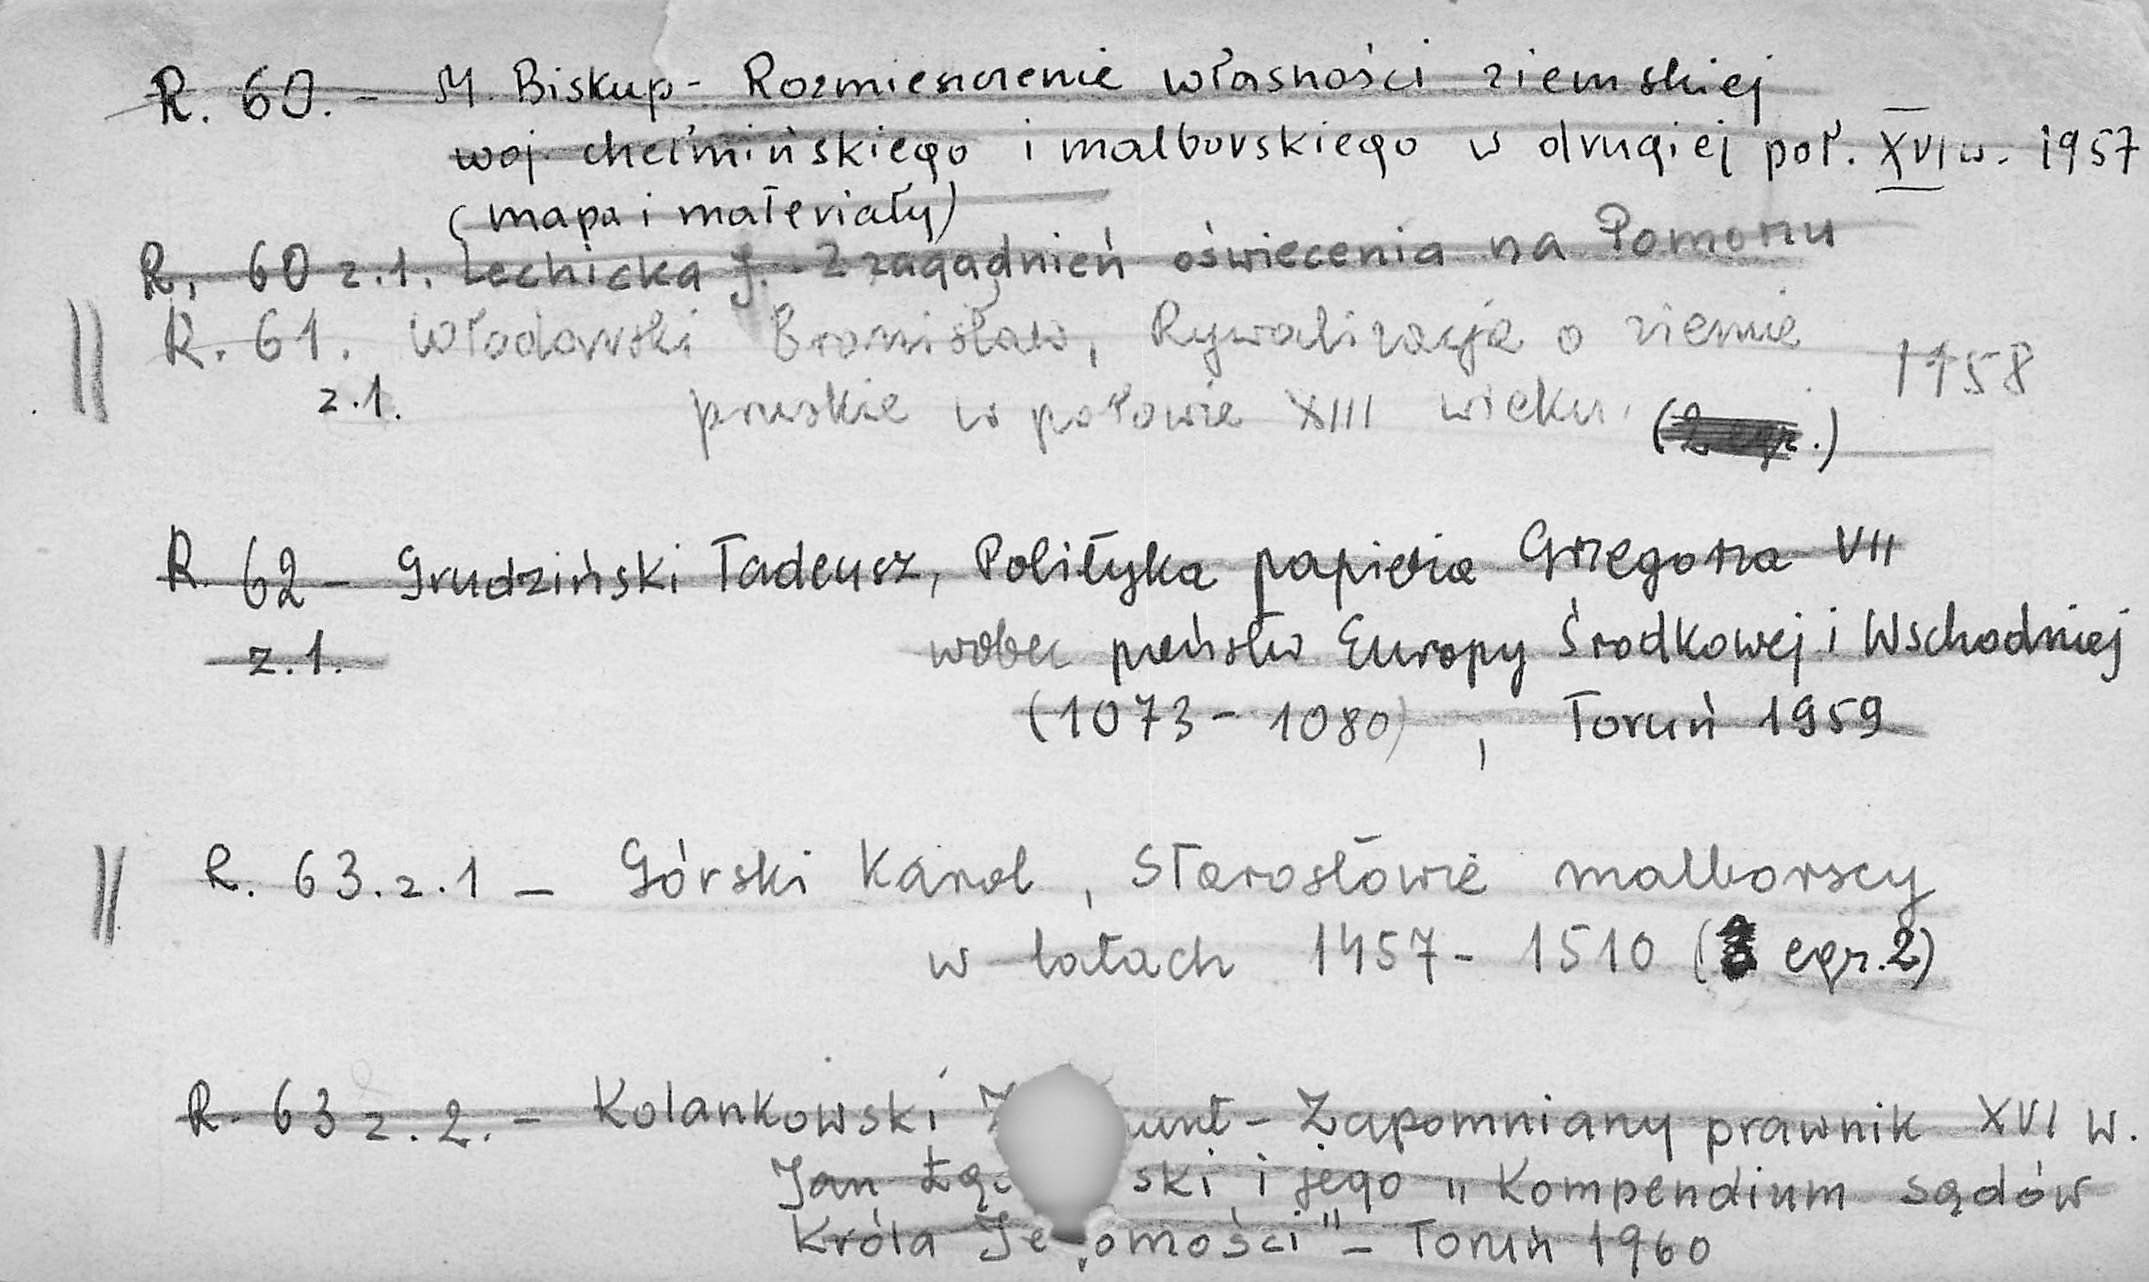 R. 60. - M. Biskup - Rozmieszczenie własności ziemskiej
woj. chełmińskiego i malborskiego w drugiej poł. XVI w. 1957
(mapa i materiały)
R. 60 z.1. Lechicka J. - Z zagadnień oświecenia na Pomorzu
R. 61. Włodarski Bronisław, Rywalizacja o ziemie 1958
z.1. pruskie w połowie XIII wieku. (2 egz.)
R. 62 - Grudziński Tadeusz, Polityka papieża Grzegorza VII
z.1. wobec państw Europy Środkowej i Wschodniej
(1073 - 1080), Toruń 1959
R. 63. z. 1 - Górski Karol, Starostowie malborscy
w latach 1457 - 1510 ( egz. 2)
R. 63 z. 2. - Kolankowski Z unt - Zapomniany prawnik XVI w.
Jan Łą ski i jego "Kompendium sądów
Króla Je omości" - Toruń 1960